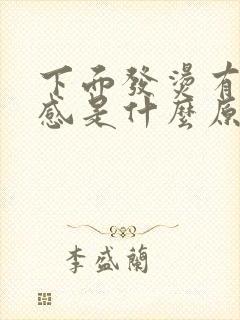 下面發燙有
感是什麼原
李盛蘭